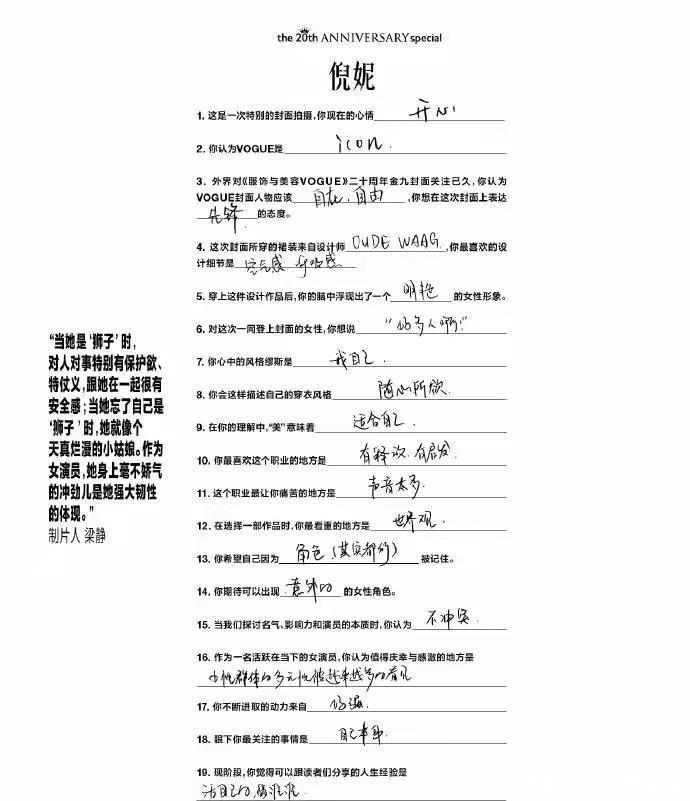 the 20th ANNIVERSARY special
倪妮
1. 这是一次特别的封面拍摄,你现在的心情 开心
2. 你认为VOGUE是 icon.
3. 外界对《服饰与美容VOGUE》二十周年金九封面关注已久,你认为
VOGUE封面人物应该 自在、自由 ,你想在这次封面上表达
先锋 的态度。
4. 这次封面所穿的裙装来自设计师 OUDE WAAG ,你最喜欢的设
计细节是 空气感 呼吸感
5. 穿上这件设计作品后,你的脑中浮现出了一个 明艳 的女性形象。
6. 对这次一同登上封面的女性,你想说 “好多人啊!”
7. 你心中的风格缪斯是 我自己.
8. 你会这样描述自己的穿衣风格 随心所欲.
9. 在你的理解中,“美”意味着 适合自己.
10. 你最喜欢这个职业的地方是 有释放、有启发.
11. 这个职业最让你痛苦的地方是 声音太多.
12. 在选择一部作品时,你最看重的地方是 世界观.
13. 你希望自己因为 角色(其实都行) 被记住。
14. 你期待可以出现 意外的 的女性角色。
15. 当我们探讨名气、影响力和演员的本质时,你认为 不冲突.
16. 作为一名活跃在当下的女演员,你认为值得庆幸与感激的地方是
女性群体的多元性被越来越多的看见
17. 你不断进取的动力来自 好强.
18. 眼下你最关注的事情是 自己本身.
19. 现阶段,你觉得可以跟读者们分享的人生经验是
活自己的,爱谁谁.
“当她是‘狮子’时,
对人对事特别有保护欲、
特仗义,跟她在一起很有
安全感;当她忘了自己是
‘狮子’时,她就像个
天真烂漫的小姑娘。作为
女演员,她身上毫不娇气
的冲劲儿是她强大韧性
的体现。”
制片人 梁静